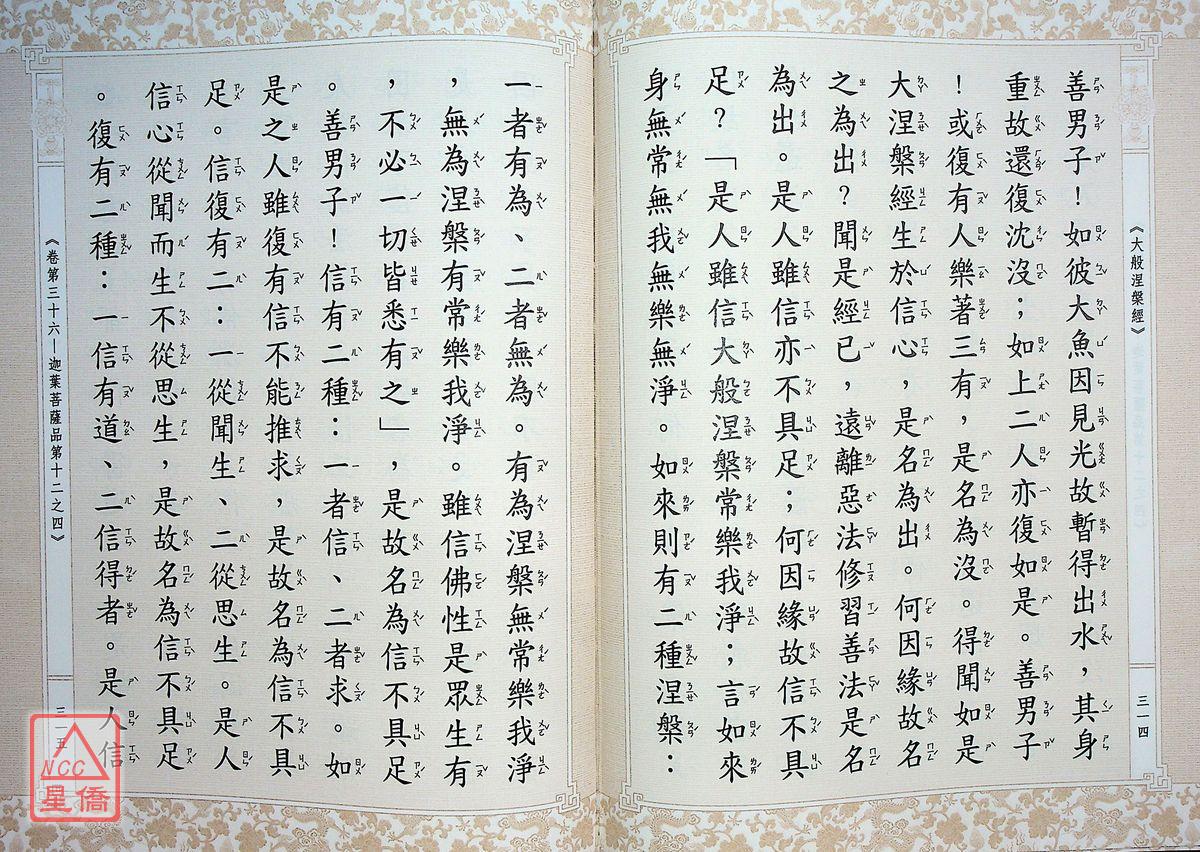 《大般涅槃經》
三一四
善男子！如彼大魚因見光故暫得出水，其身
重故還復沈沒；如上二人亦復如是。善男子
！或復有人樂著三有，是名為沒。得聞如是
大涅槃經生於信心，是名為出。何因緣故名
之為出？聞是經已，遠離惡法修習善法是名
為出。是人雖信亦不具足；何因緣故信不具
足？「是人雖信大般涅槃常樂我淨；言如來
身無常無我無樂無淨。如來則有二種涅槃：
一者有為、二者無為。有為涅槃無常樂我淨
，無為涅槃有常樂我淨。雖信佛性是眾生有
，不必一切皆悉有之」，是故名為信不具足
。善男子！信有二種：一者信、二者求。如
是之人雖復有信不能推求，是故名為信不具
足。信復有二：一從聞生、二從思生。是人
信心從聞而生不從思生，是故名為信不具足
。復有二種：一信有道、二信得者。是人信
《卷第三十六－迦葉菩薩品第十二之四》
三一五
NCC
星僑